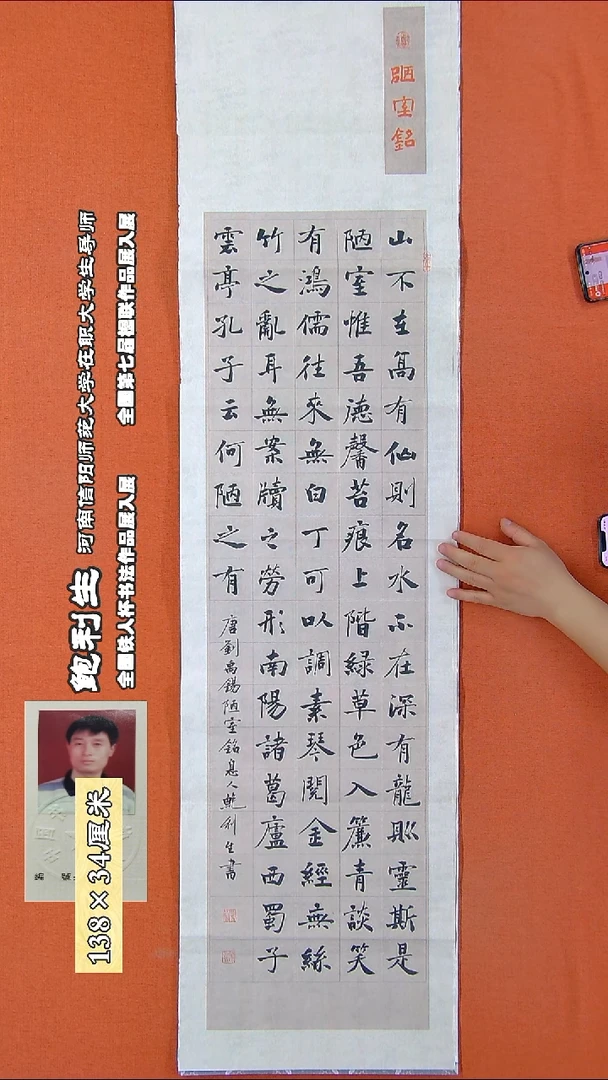 陋室銘
山不在高有仙則名水不在深有龍則靈斯是
陋室惟吾德馨苔痕上階綠草色入簾青談笑
有鴻儒往來無白丁可以調素琴閱金經無絲
竹之亂耳無案牘之勞形南陽諸葛廬西蜀子
雲亭孔子云何陋之有
唐劉禹錫陋室銘息人鮑利生書
鲍利生 河南信阳师范大学在职大学生导师
全国铁人杯书法作品展入展 全国第七届楹联作品展入展
138×34厘米